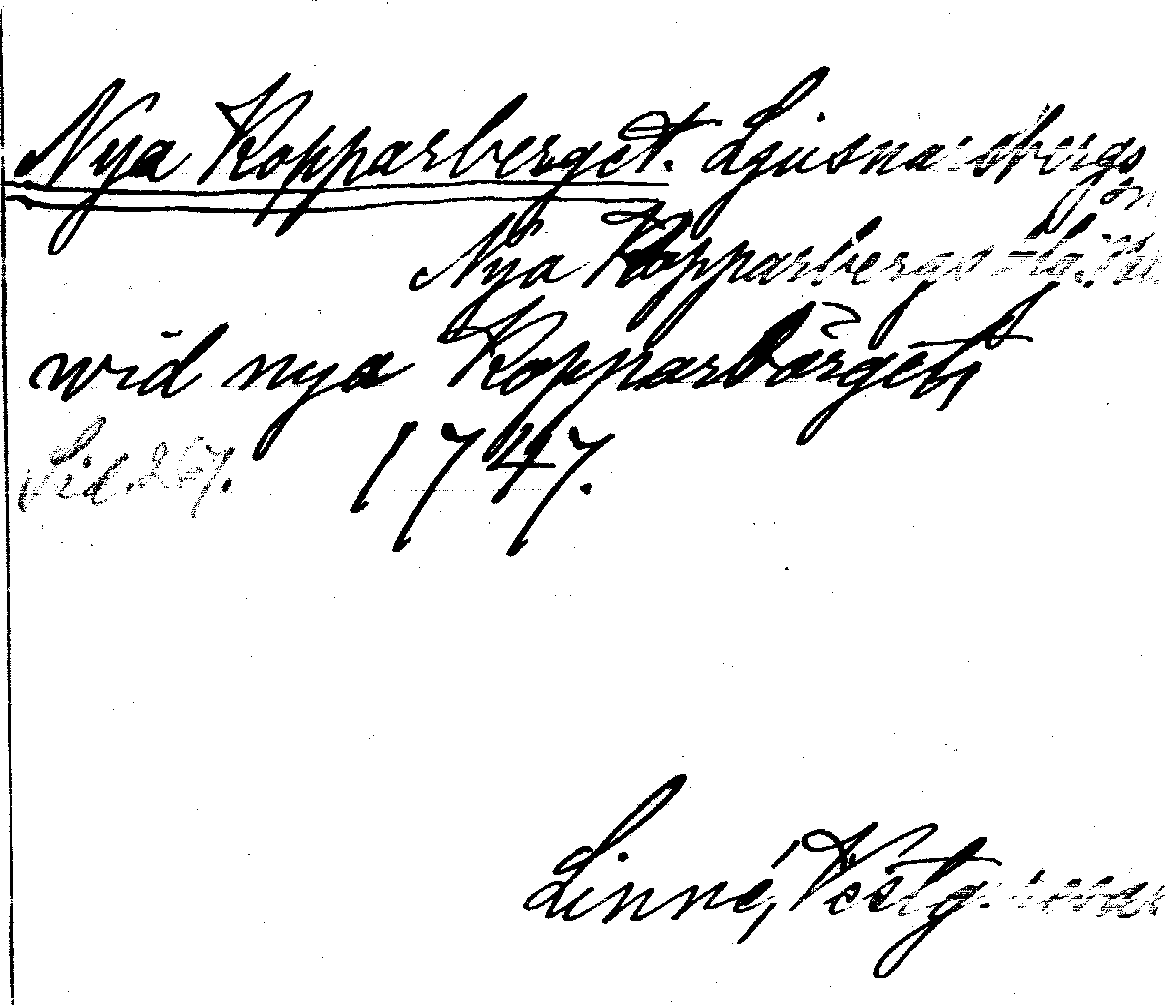 Nya Kopparberget. Ljusnarsbergs
sn
Nya Kopparbergs
wid nya Kopparbärget,
Sid. 267. 1747.
Linné, Västg.